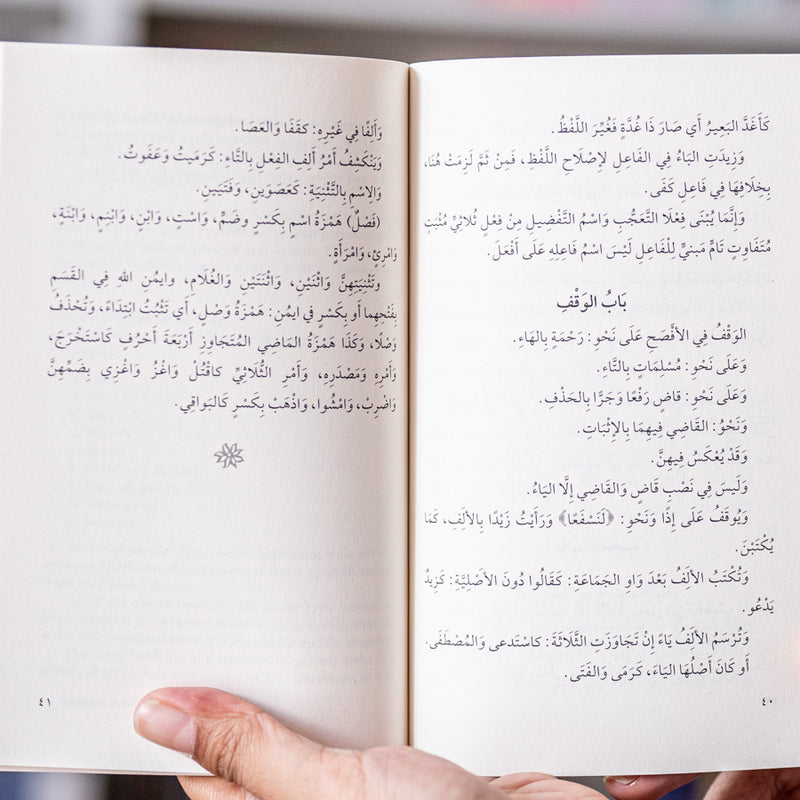 كَأَغَدَّ البَعِيرُ أَي صَارَ ذَا غُدَّةٍ فَغُيِّرَ اللَّفْظُ.
وَزِيدَتِ البَاءُ فِي الفَاعِلِ لِإِصْلَاحِ اللَّفْظِ، فَمِنْ ثَمَّ لَزِمَتْ هُنَا،
بِخِلَافِهَا فِي فَاعِلِ كَفَى.
وَإِنَّمَا يُبْنَى فِعْلَا التَّعَجُّبِ وَاسْمُ التَّفْضِيلِ مِنْ فِعْلٍ ثُلَاثِيٍّ مُثْبَتٍ
مُتَفَاوِتٍ تَامٍّ مَبنيٍّ لِلْفَاعِلِ لَيْسَ اسْمُ فَاعِلِهِ عَلَى أَفْعَلَ.
بَابُ الوَقْفِ
الوَقْفُ فِي الأَفْصَحِ عَلَى نَحْوِ: رَحْمَةٍ بِالهَاءِ.
وَعَلَى نَحْوِ: مُسْلِمَاتٍ بِالتَّاءِ.
وَعَلَى نَحْوِ: قاضٍ رَفْعًا وَجَرًّا بِالحَذْفِ.
وَنَحْوُ: القَاضِي فِيهِمَا بِالإِثْبَاتِ.
وَقَدْ يُعْكَسُ فِيهِنَّ.
وَلَيسَ فِي نَصْبِ قَاضٍ وَالقَاضِي إِلَّا اليَاءُ.
وَيُوقَفُ عَلَى إِذًا وَنَحْوِ: ﴿لَنَسْفَعًا﴾ وَرَأَيْتُ زَيْدًا بِالأَلِفِ، كَمَا
يُكْتَبْنَ.
وَتُكْتَبُ الأَلِفُ بَعْدَ وَاوِ الجَمَاعَةِ: كَقَالُوا دُونَ الأَصْلِيَّةِ: كَزَيدٌ
يَدْعُو.
وَتُرْسَمُ الأَلِفُ يَاءً إِنْ تَجَاوَزَتِ الثَّلَاثَةَ: كاسْتَدعى وَالمُصْطَفَى.
أَو كَانَ أَصْلُهَا اليَاءَ، كَرَمَى وَالفَتَى.
٤٠
وَأَلِفًا فِي غَيْرِهِ: كَقَفَا وَالعَصَا.
وَيَنْكَشِفُ أَمْرُ أَلِفِ الفِعْلِ بِالتَّاءِ: كَرَمَيتُ وَعَفَوتُ.
وَالِاسْمِ بِالتَّثْنِيَةِ: كَعَصَوَينِ، وَفَتَيَينِ.
(فَصْلٌ) هَمْزَةُ اسْمٍ بِكَسْرٍ وضَمٍّ، وَاسْتٍ، وَابْنٍ، وَابْنِمٍ، وَابْنَةٍ،
وَامْرِئٍ، وَامْرَأَةٍ.
وَتَثْنِيَتِهِنَّ وَاثْنَيْنِ، وَاثْنَتَيْنِ وَالغُلَامِ، وايمُنِ اللهِ فِي القَسَمِ
بِفَتْحِهِما أَو بِكَسْرٍ في ايمُنِ: هَمْزَةُ وَصْلٍ، أَي تَثْبُتُ ابْتِدَاءً، وَتُحْذَفُ
وَصْلًا، وَكَذَا هَمْزَةُ المَاضِي المُتَجَاوِزِ أَرْبَعَةَ أَحْرُفٍ كَاسْتَخْرَجَ،
وَأَمْرِهِ وَمَصْدَرِهِ، وَأَمْرِ الثُّلَاثِيِّ كاقْتُلْ وَاغْزُ وَاغْزِي بِضَمِّهِنَّ
وَاضْرِبْ، وَامْشُوا، وَاذْهَبْ بِكَسْرٍ كَالبَوَاقِي.
٤١